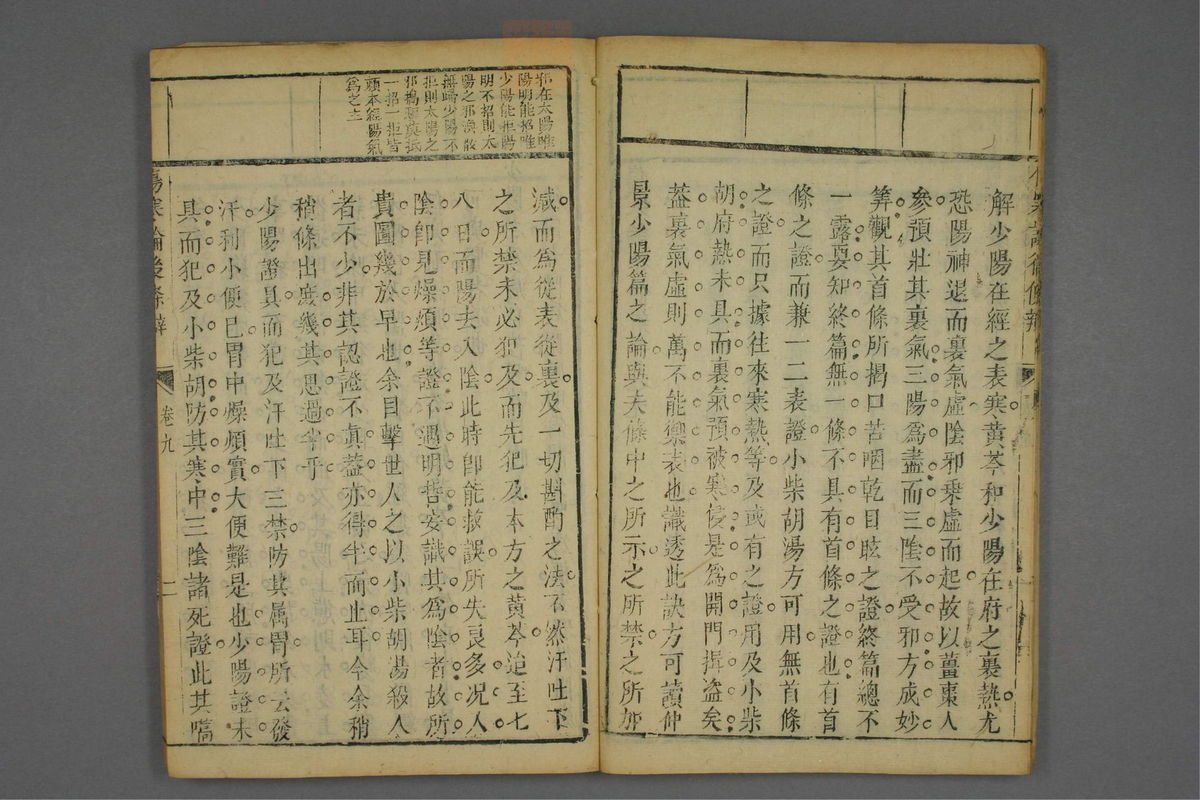 解少陽在經之表寒黃芩和少陽在府之裏熱尤
恐陽神退而裏氣虛陰邪乘虛而起故以薑棗人
參預壯其裏氣三陽爲盡而三陰不受邪方成妙
筭觀其首條所揭口苦咽乾目眩之證終篇總不
一露要知終篇無一條不具有首條之證也有首
條之證而兼一二表證小柴胡湯方可用無首條
之證而只據往來寒熱等及或有之證用及小柴
胡府熱未具而裏氣預被寒侵是爲開門揖盜矣
蓋裏氣虛則萬不能禦表也識透此訣方可讀仲
景少陽篇之論與夫條中之所示之所禁之所加
邪在太陽唯
陽明能招唯
少陽能拒陽
明不招則太
陽之邪渙散
無歸少陽不
拒則太陽之
邪搗
一招一拒皆
賴本經陽氣
爲之主
減而爲從表從裏及一切斟酌之法不然汗吐下
之所禁未必犯及而先犯及本方之黃芩迨至七
八日而陽去入陰此時卽能救誤所失良多况人
陰卽見燥煩等證不遇明哲安識其爲陰者故所
貴圖幾於早也余目擊世人之以小柴胡湯殺人
者不少非其認證不眞蓋亦得半而止耳今余稍
稍條出庶幾其思過半乎
少陽證具而犯及汗吐下三禁防其属胃所云發
汗利小便已胃中燥煩實大便難是也少陽證未
具而犯及小柴胡防其寒中三陰諸死證此其嚆
傷寒論後條辨
卷九
二